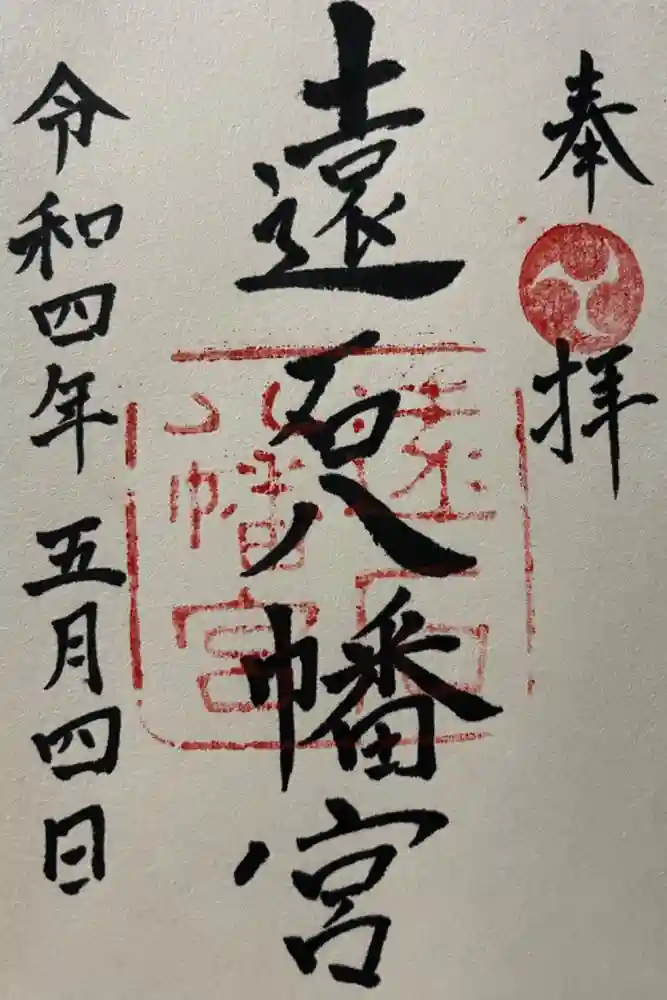 奉拝
遠石八幡宮
遠石
八幡宮
令和四年五月四日